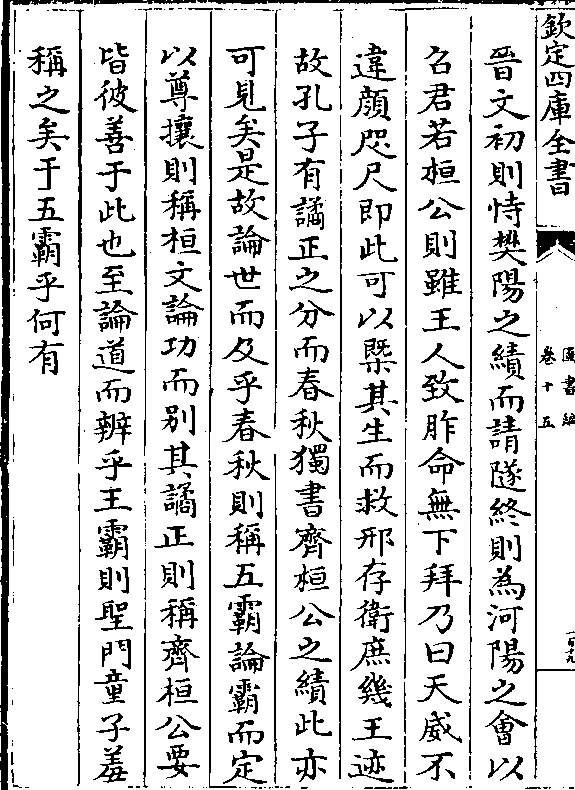 欽定四庫全書
圖書編
卷十五
晉文初則恃樊陽之績而請隧終則為河陽之會以
召君若桓公則雖王人致胙命無下拜乃曰天威不
違顏咫尺即此可以槩其生而救邢存衛庶幾王迹
故孔子有譎正之分而春秋獨書齊桓公之績此亦
可見矣是故論世而及乎春秋則稱五霸論霸而定
以尊攘則稱桓文論功而别其譎正則稱齊桓公要
皆彼善于此也至論道而辨乎王霸則聖門童子羞
稱之矣于五霸乎何有